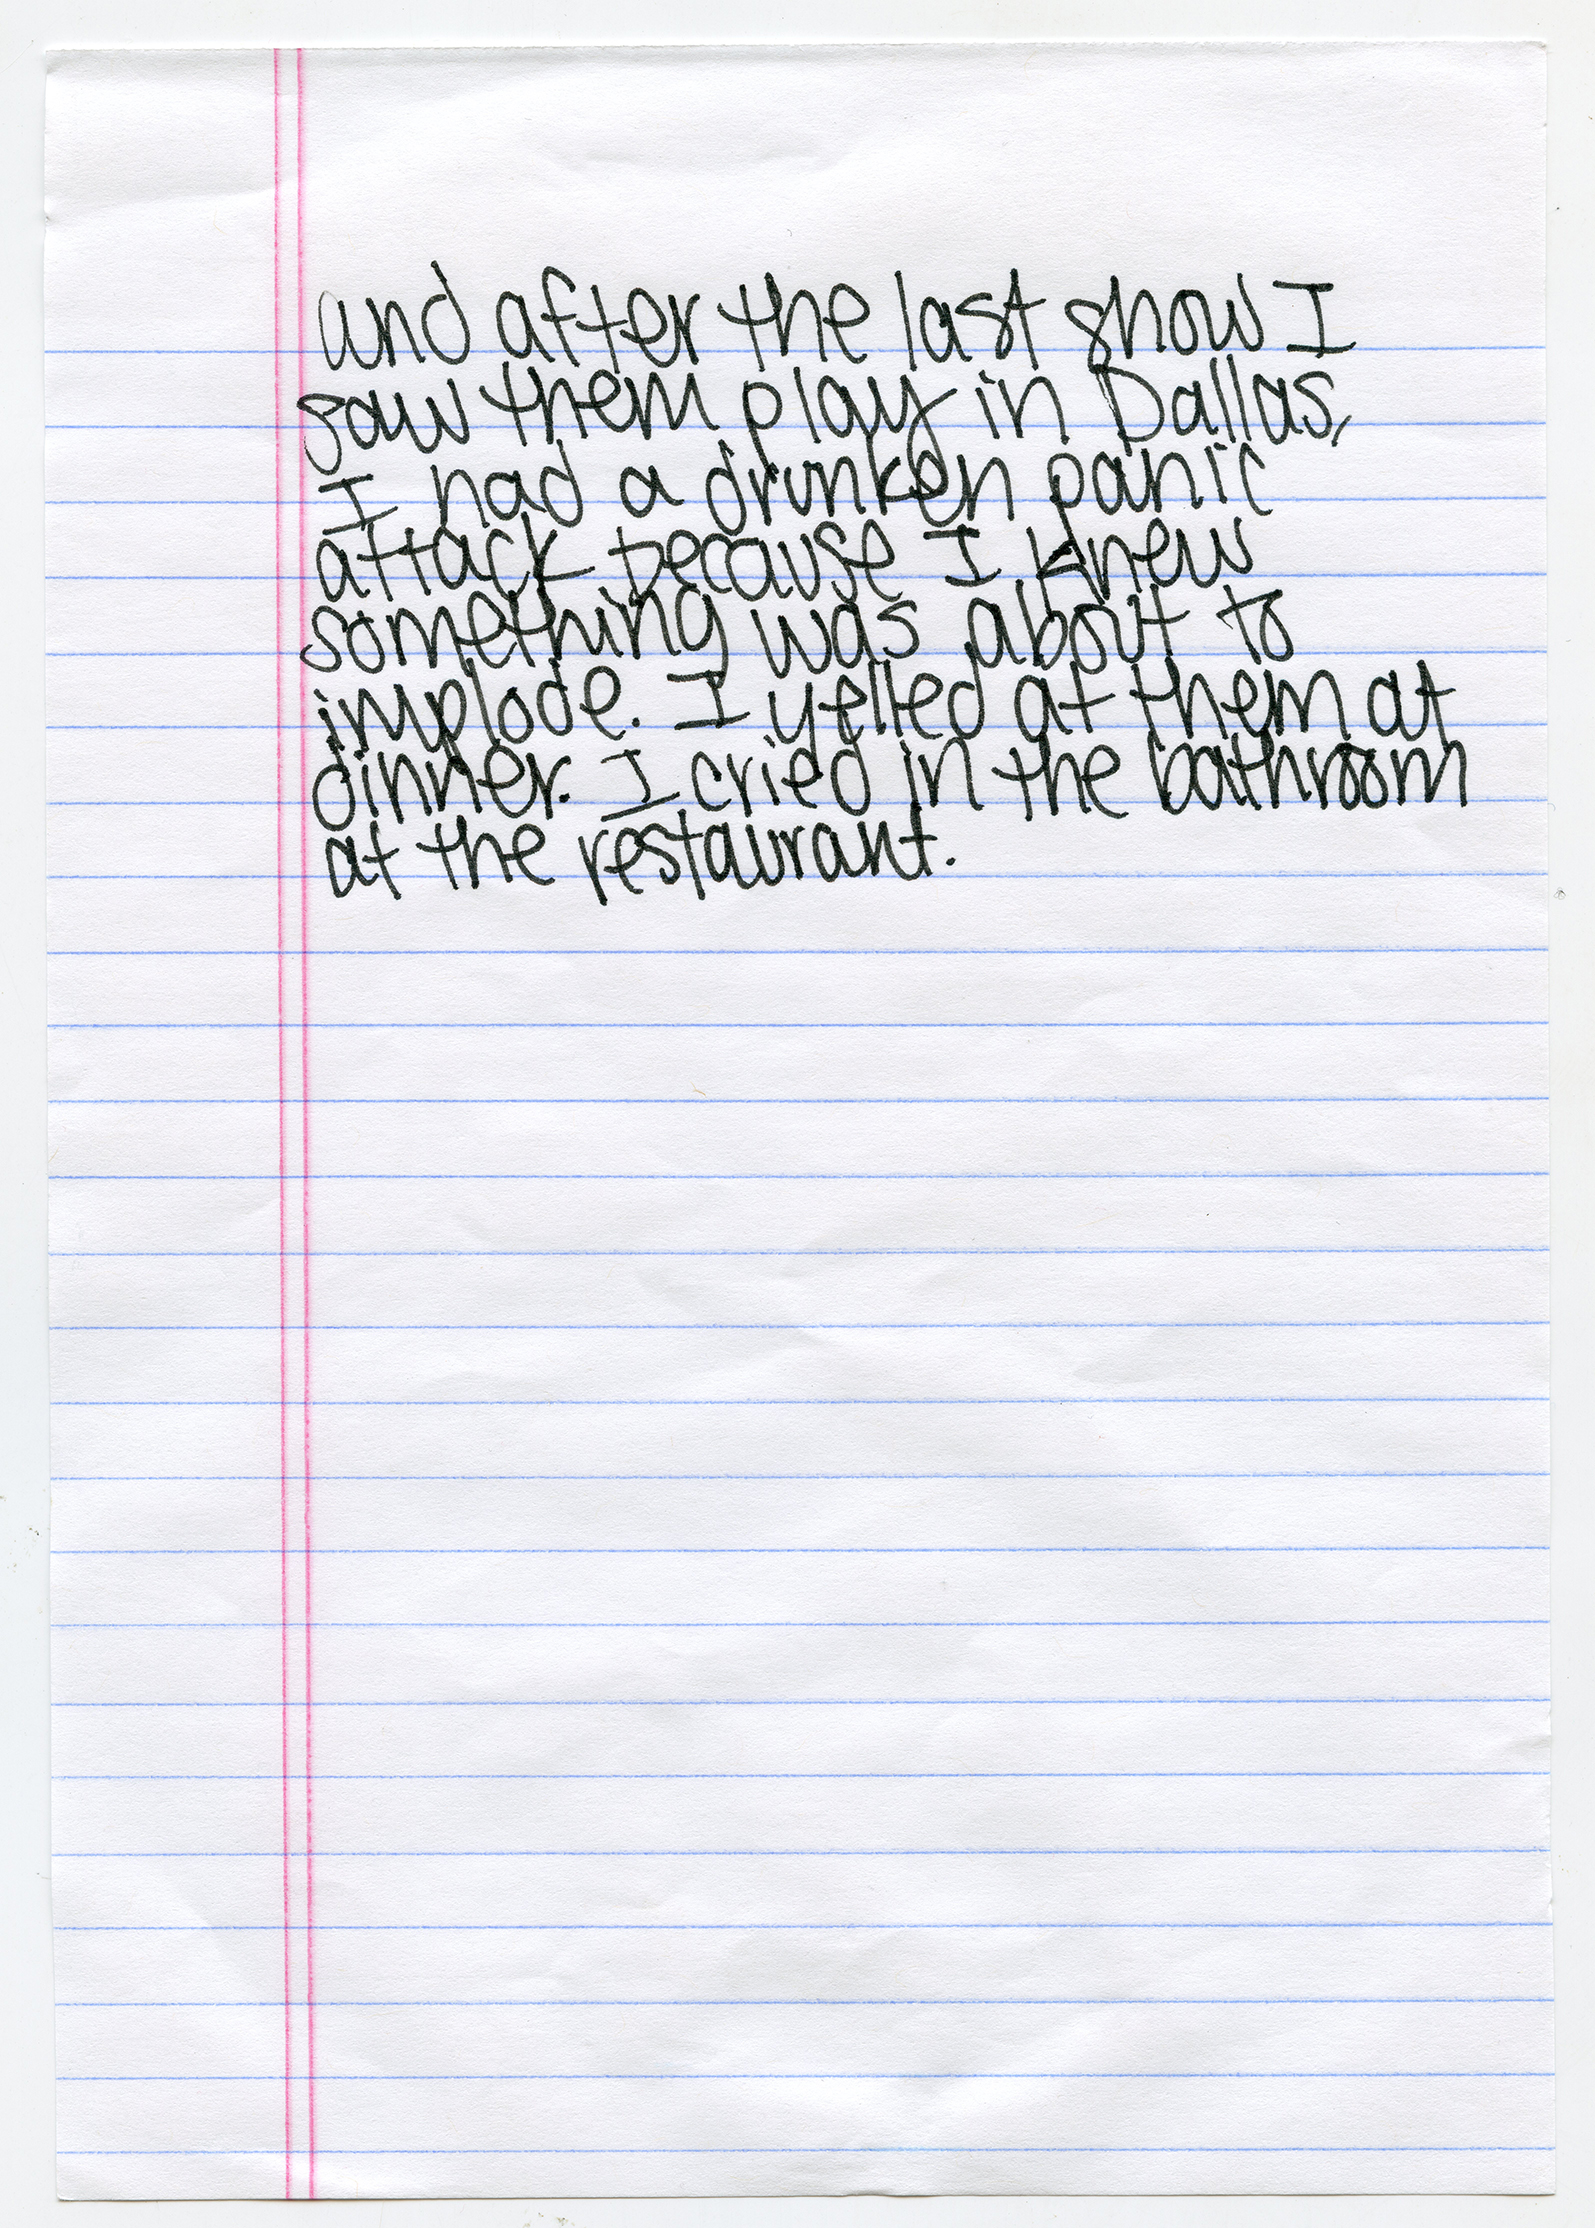 and after the last show I
saw them play in Dallas,
I had a drunken panic
attack because I knew
something was about to
implode. I yelled at them at
dinner. I cried in the bathroom
at the restaurant.